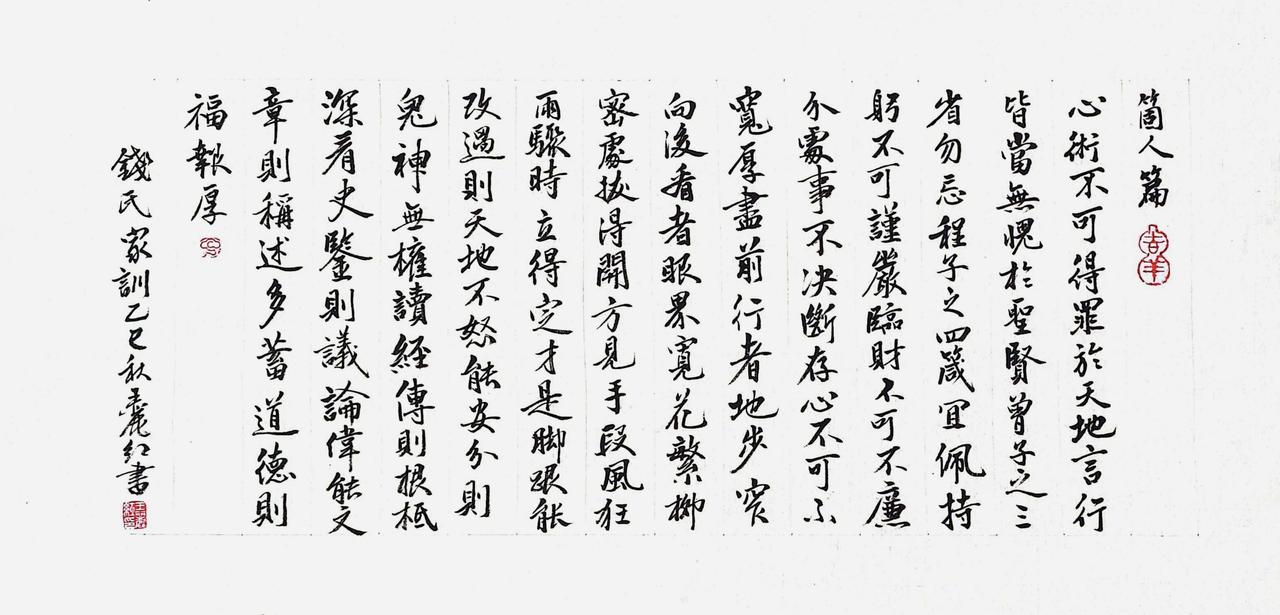 箇人篇
吉羊
心術不可得罪於天地言行
皆當無愧於聖賢曾子之三
省勿忘程子之四箴宜佩持
躬不可謹嚴臨財不可不廉
介處事不决斷存心不可不
寬厚盡前行者地步窄
向後看者眼界寬花繁柳
密處拔得開方見手段風狂
雨驟時立得定才是脚跟能
改過則天地不怒能安分則
鬼神無權讀經傳則根柢
深看史鑒則議論偉能文
章則稱述多蓄道德則
福報厚
錢民家訓乙巳秋麗红書